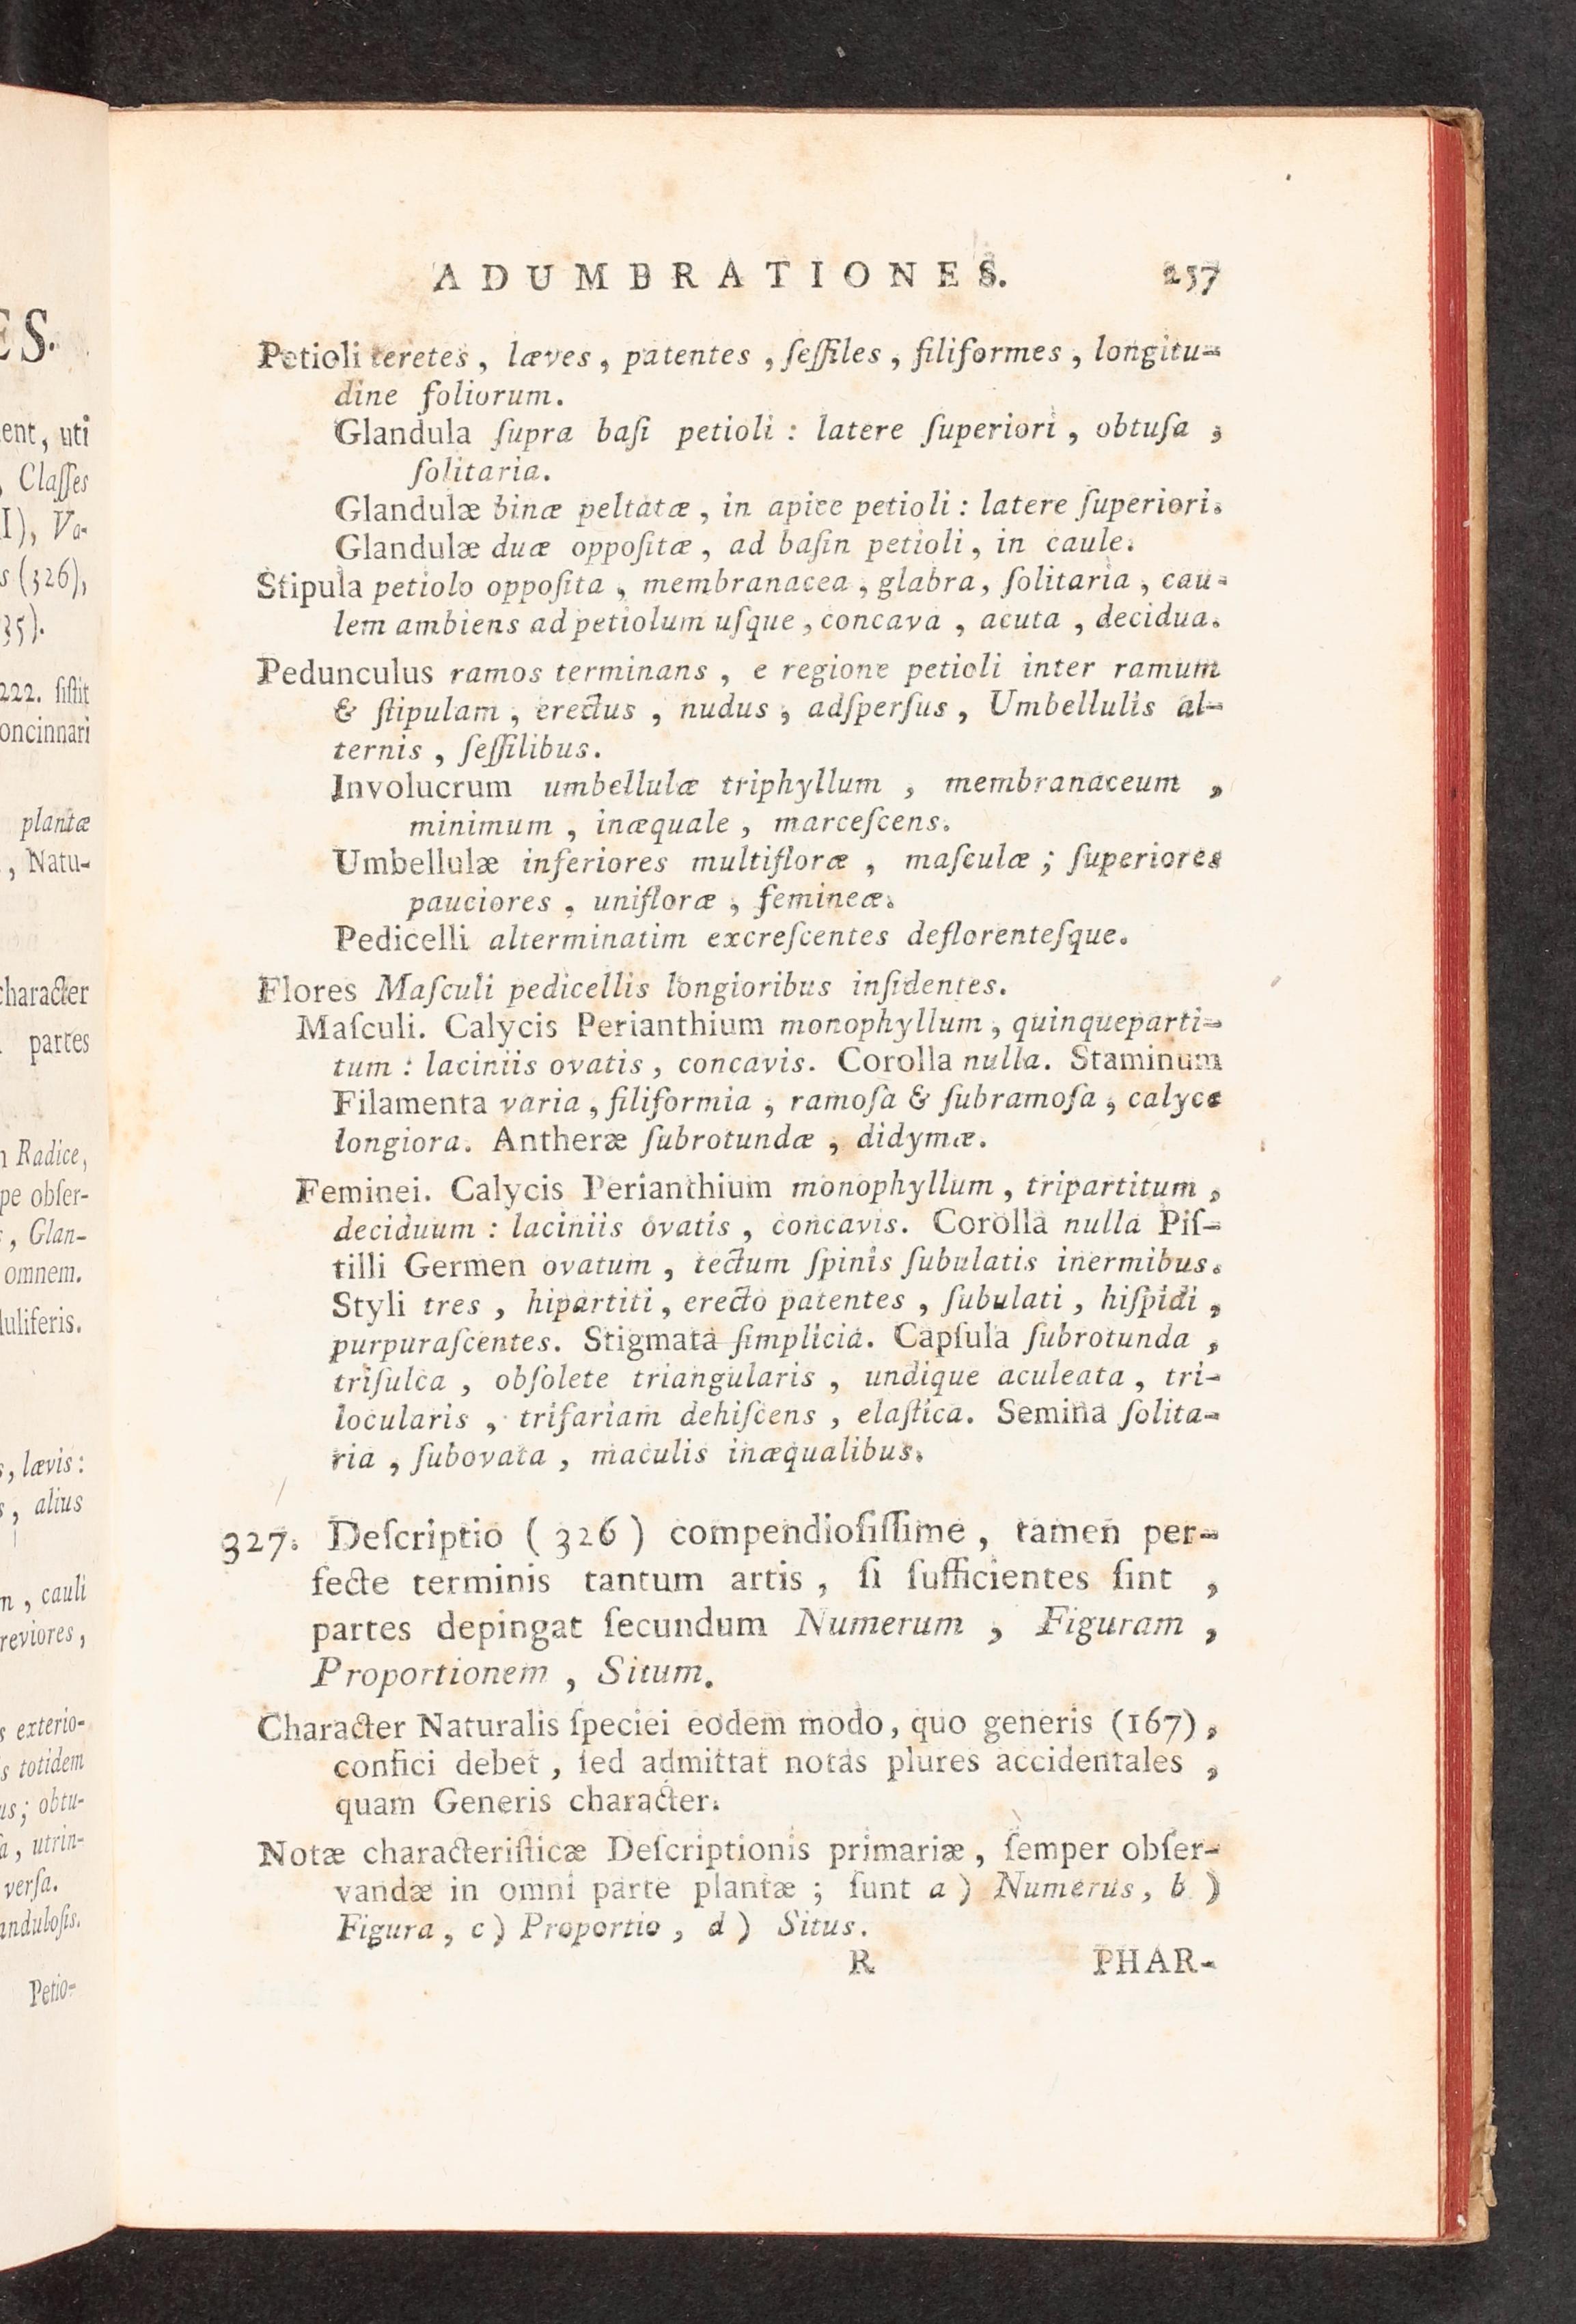 ES.
ent, uti
, Claſſes
I), Va-
s (326),
35).
222. ſiſtit
oncinnari
plantæ
, Natu-
character
partes
n Radice,
pe obſer-
, Glan-
omnem.
luliferis.
s, lævis:
s, alius
n, cauli
reviores,
s exterio-
s totidem
us; obtu-
a, utrin-
verſa.
anduloſis.
Petio-
ADUMBRATIONES. 257
Petioli teretes, læves, patentes, ſeſſiles, filiformes, longitu-
dine foliorum.
Glandula ſupra baſi petioli: latere ſuperiori, obtuſa,
ſolitaria.
Glandulæ binæ peltatæ, in apice petioli: latere ſuperiori.
Glandulæ duæ oppoſitæ, ad baſin petioli, in caule.
Stipula petiolo oppoſita, membranacea, glabra, ſolitaria, cau-
lem ambiens ad petiolum uſque, concava, acuta, decidua.
Pedunculus ramos terminans, e regione petioli inter ramum
& ſtipulam, erectus, nudus, adſperſus, Umbellulis al-
ternis, ſeſſilibus.
Involucrum umbellulæ triphyllum, membranaceum,
minimum, inæquale, marceſcens.
Umbellulæ inferiores multifloræ, maſculæ; ſuperiores
pauciores, unifloræ, femineæ.
Pedicelli alterminatim excreſcentes deflorenteſque.
Flores Maſculi pedicellis longioribus inſidentes.
Maſculi. Calycis Perianthium monophyllum, quinqueparti-
tum: laciniis ovatis, concavis. Corolla nulla. Staminum
Filamenta varia, filiformia, ramoſa & ſubramoſa, calyce
longiora. Antheræ ſubrotundæ, didymæ.
Feminei. Calycis Perianthium monophyllum, tripartitum,
deciduum: laciniis ovatis, concavis. Corolla nulla Piſ-
tilli Germen ovatum, tectum ſpinis ſubulatis inermibus.
Styli tres, hipartiti, erecto patentes, ſubulati, hiſpidi,
purpuraſcentes. Stigmata ſimplicia. Capſula ſubrotunda,
triſulca, obſolete triangularis, undique aculeata, tri-
locularis, trifariam dehiſcens, elaſtica. Semina ſolita-
ria, ſubovata, maculis inæqualibus.
327. Deſcriptio (326) compendioſiſſime, tamen per-
fecte terminis tantum artis, ſi ſufficientes ſint,
partes depingat ſecundum Numerum, Figuram,
Proportionem, Situm.
Character Naturalis ſpeciei eodem modo, quo generis (167),
confici debet, ſed admittat notas plures accidentales,
quam Generis character.
Notæ characteriſticæ Deſcriptionis primariæ, ſemper obſer-
vandæ in omni parte plantæ; ſunt a) Numerus, b)
Figura, c) Proportio, d) Situs.
R PHAR-